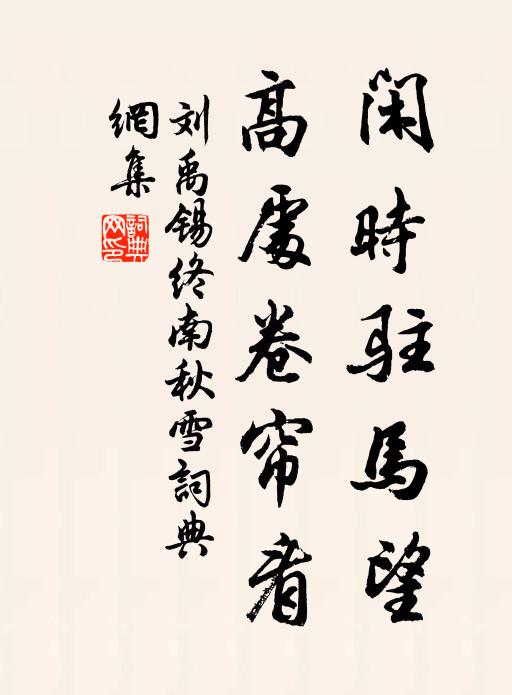 閑時駐馬望
高處卷帘看
刘禹锡终南秋雪詞典
網集
詞典網印